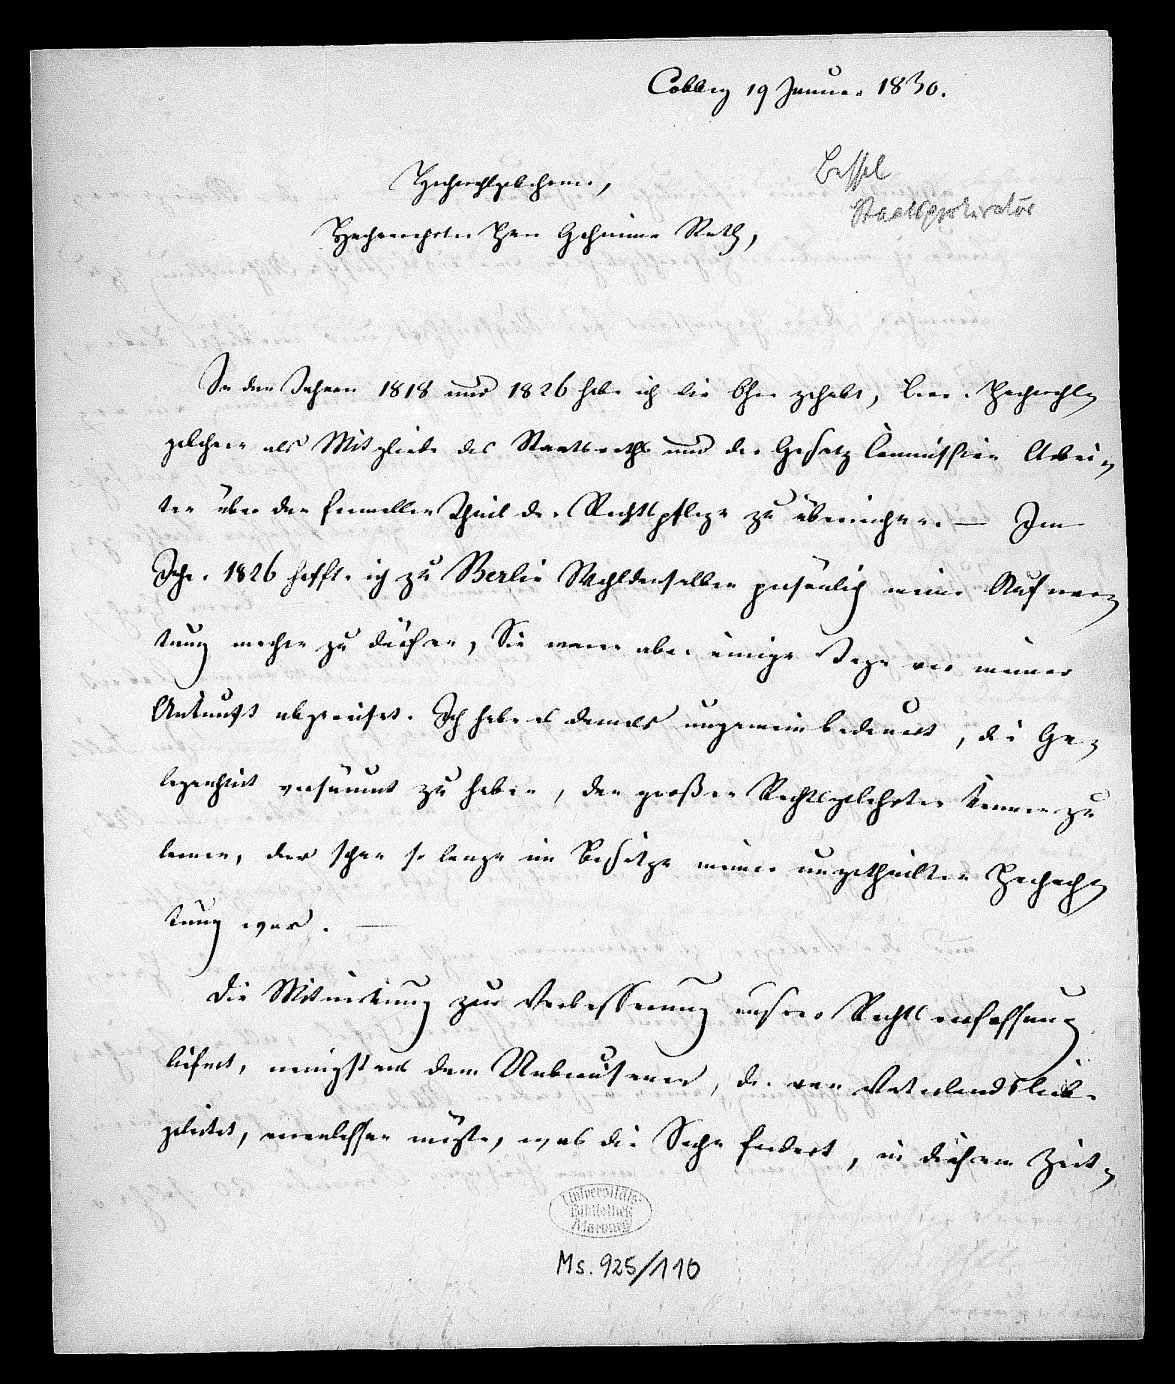 Coblenz 19 Januar 1830.
Bessel
Staatsprokurator
Hochwohlgeborner,
Hochverehrter Herr Geheimer Rath,
In den Jahren 1818 und 1826 habe ich die Ehre gehabt, Euer Hochwohl-
geboren als Mitgliede des Staatsraths und der Gesetz Commission Arbei-
ten über den formellen Theil der Rechtspflege zu überreichen. — Im
Jahr 1826 hoffte ich zu Berlin Wohldenselben persönlich meine Aufwar-
tung machen zu dürfen, Sie waren aber einige Tage vor meiner
Ankunft abgereiset. Ich habe es damals ungemein bedauert, die Ge-
legenheit versäumt zu haben, den großen Rechtsgelehrten kennen zu
lernen, der schon so lange im Besitze meiner ungetheilten Hochach-
tung war. —
Die Mitwirkung zur Verbesserung unsrer Rechtsverfassung
liefert, wenigstens dem Unberufenen, der von Vaterlandsliebe
geleitet, veranlassen möchte, was die Sache fordert, in diesem Zeit-
Universitäts-
Bibliothek
Marburg
Ms. 925/110